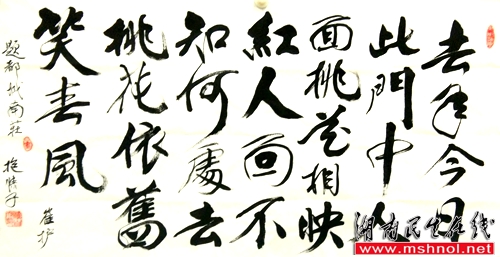 去年今日
此門中人
面桃花相映
紅人面不
知何處去
桃花依舊
笑春風
崔护
题都城南莊
湖南民生在线
www.mshnol.net